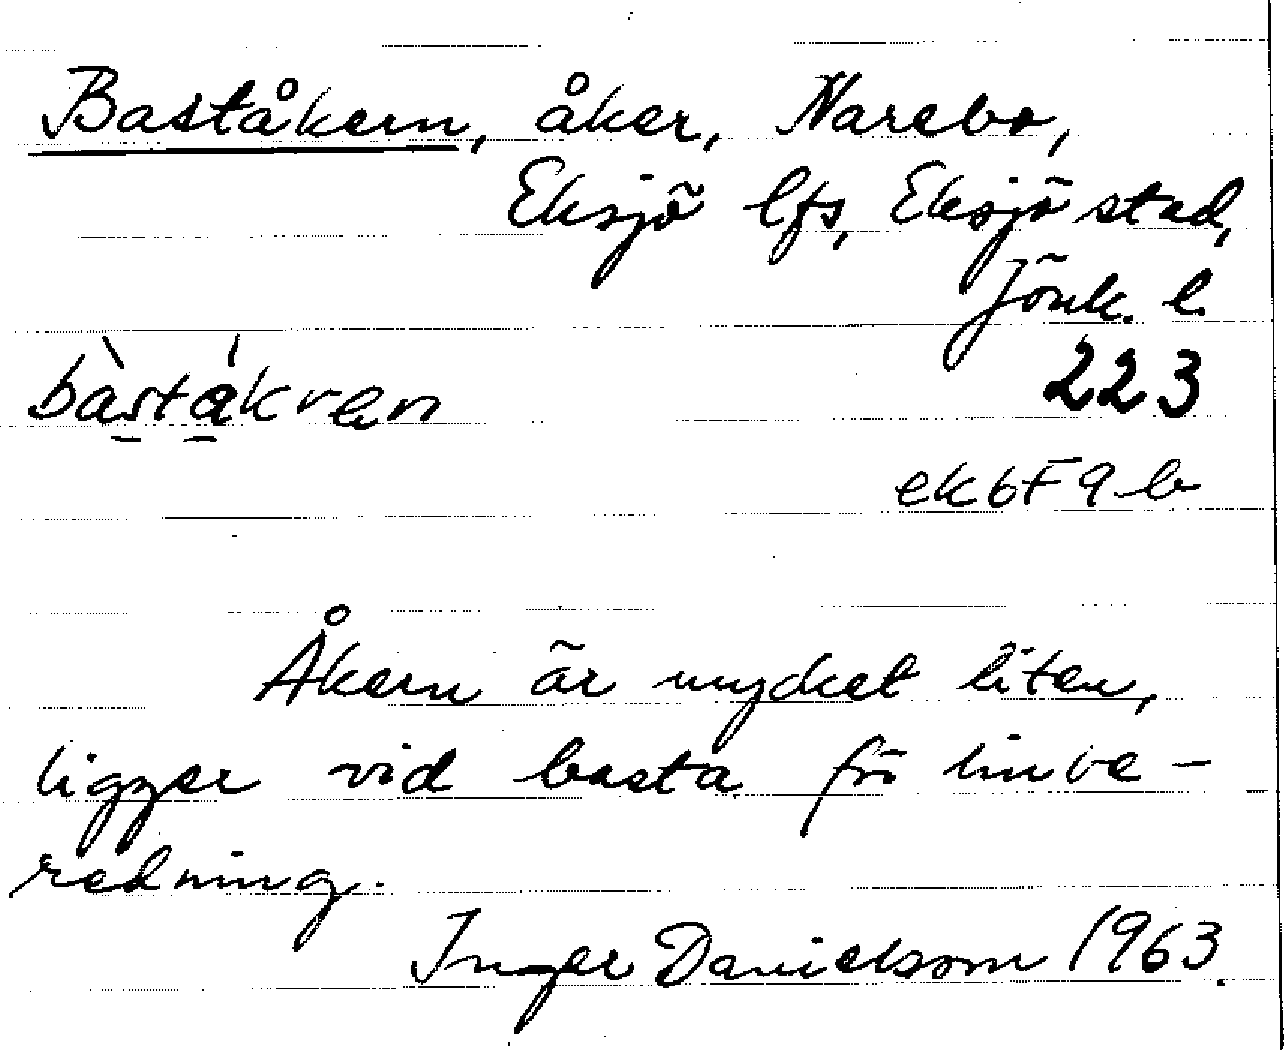 Baståkern, åker, Narebo,
Eksjö lfs, Eksjö stad,
Jönk. l.
bàstákren
223
ek 6F 9 b
Åkern är mycket liten,
ligger vid basta för linbe-
redning.
Inger Danielsson 1963.